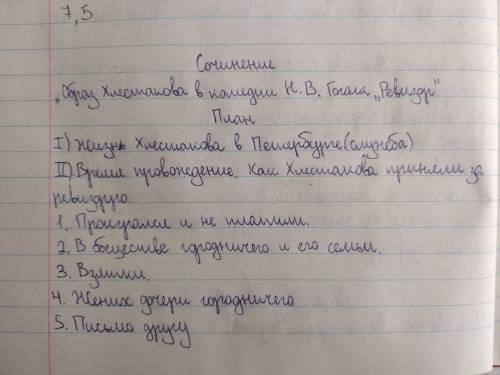 7,5
Сочинение
„Образ Хлестакова в комедии Н.В. Гоголя „Ревизор"
План
I) Жизнь Хлестакова в Петербурге (служба)
II) Время провождение. Как Хлестакова приняли за
ревизора.
1. Проигрался и не платит.
2. В обществе городничего и его семьи.
3. Взятки.
4. Жених дочери городничего
5. Письмо другу